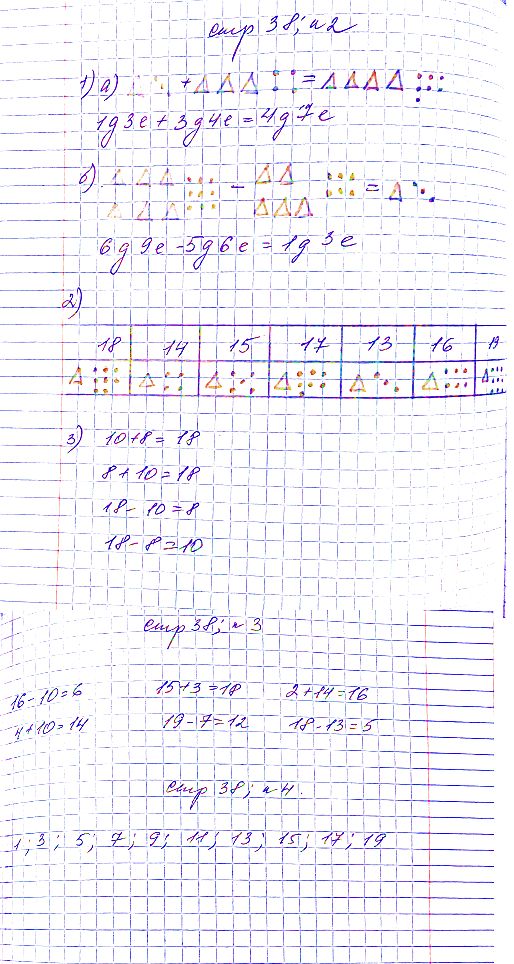 стр 38; №2
1) а) + =
1д3е + 3д4е = 4д7е
б) - =
6д9е - 5д6е = 1д3е
2)
18 14 15 17 13 16 19
3) 10+8=18
8+10=18
18-10=8
18-8=10
стр 38; №3
16-10=6 15+3=18 2+14=16
4+10=14 19-7=12 18-13=5
стр 38; №4.
1; 3; 5; 7; 9; 11; 13; 15; 17; 19